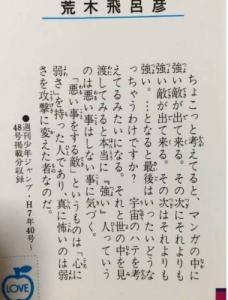 荒木飛呂彦
ちょこっと考えてると、マンガの中に
強い敵が出て来る。その次にそれよりも
強い敵が出て来る。その次はそれよりも
強い。…となると最後はいったいどうな
っちゃうわけですか？宇宙のハテを考
えてるみたいになる。それと世の中を見
渡してみると本当に「強い」人っていう
のは悪い事はしない事に気づく。
「悪い事をする敵」というものは「心に
弱さ」を持った人であり、真に怖いのは弱
さを攻撃に変えた者なのだ。
●週刊少年ジャンプ・H7年40号〜
48号掲載分収録
LOVE